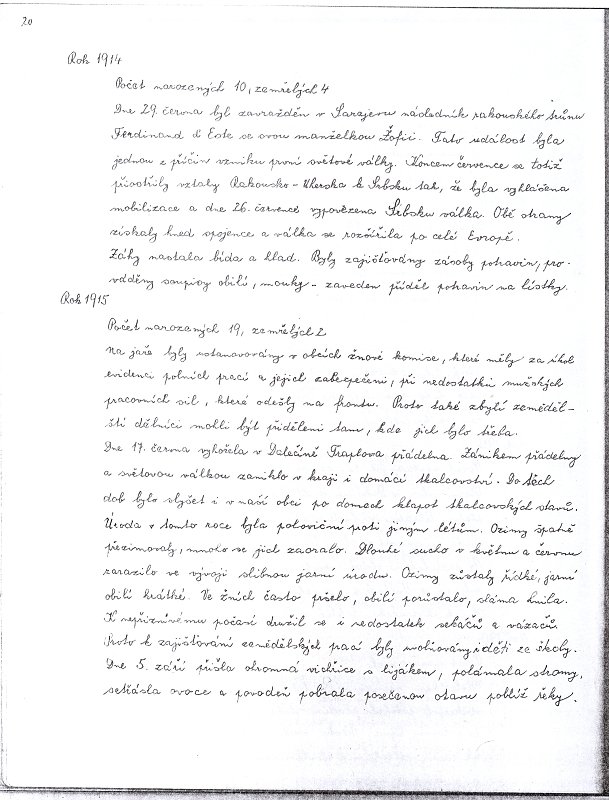 20
Rok 1914
Počet narozených 10, zemřelých 4
Dne 29. června byl zavražděn v Sarajevu následník rakouského trůnu
Ferdinand d Este se svou manželkou Žofií. Tato událost byla
jednou z příčin vzniku první světové války. Koncem července se totiž
přiostřily vztahy Rakousko-Uherska k Srbsku tak, že byla vyhlášena
mobilizace a dne 26. července vypovězena Srbsku válka. Obě strany
získaly hned spojence a válka se rozšířila po celé Evropě.
Záhy nastala bída a hlad. Byly zajišťovány zásoby potravin, pro-
váděny soupisy obilí, mouky - zaveden příděl potravin na lístky.
Rok 1915
Počet narozených 19, zemřelých 2
Na jaře byly ustanovovány v obcích žňové komise, které měly za úkol
evidenci polních prací a jejich zabezpečení, při nedostatku mužských
pracovních sil, které odešly na frontu. Proto také zbylí zeměděl-
ští dělníci mohli být přiděleni tam, kde jich bylo třeba.
Dne 17. června vyhořela v Dalečíně Traplova přádelna. Zánikem přádelny
a světovou válkou zaniklo v kraji i domácí tkalcovství. Do těch
dob bylo slyšet i v naší obci po domech klapot tkalcovských stavů.
Úroda v tomto roce byla poloviční proti jiným létům. Ozimy špatně
přezimovaly, mnoho se jich zaoralo. Dlouhé sucho v květnu a červnu
zarazilo ve vývoji slibnou jarní úrodu. Ozimy zůstaly řídké, jarní
obilí krátké. Ve žních často pršelo, obilí porůstalo, sláma hnila.
K nepříznivému počasí družil se i nedostatek sekáčů a vazačů.
Proto k zajišťování zemědělských prací byly uvolňovány i děti ze školy.
Dne 5. září přišla ohromná vichřice s lijákem, polámala stromy,
setřásla ovoce a povodeň pobrala posečenou otavu poblíž řeky.